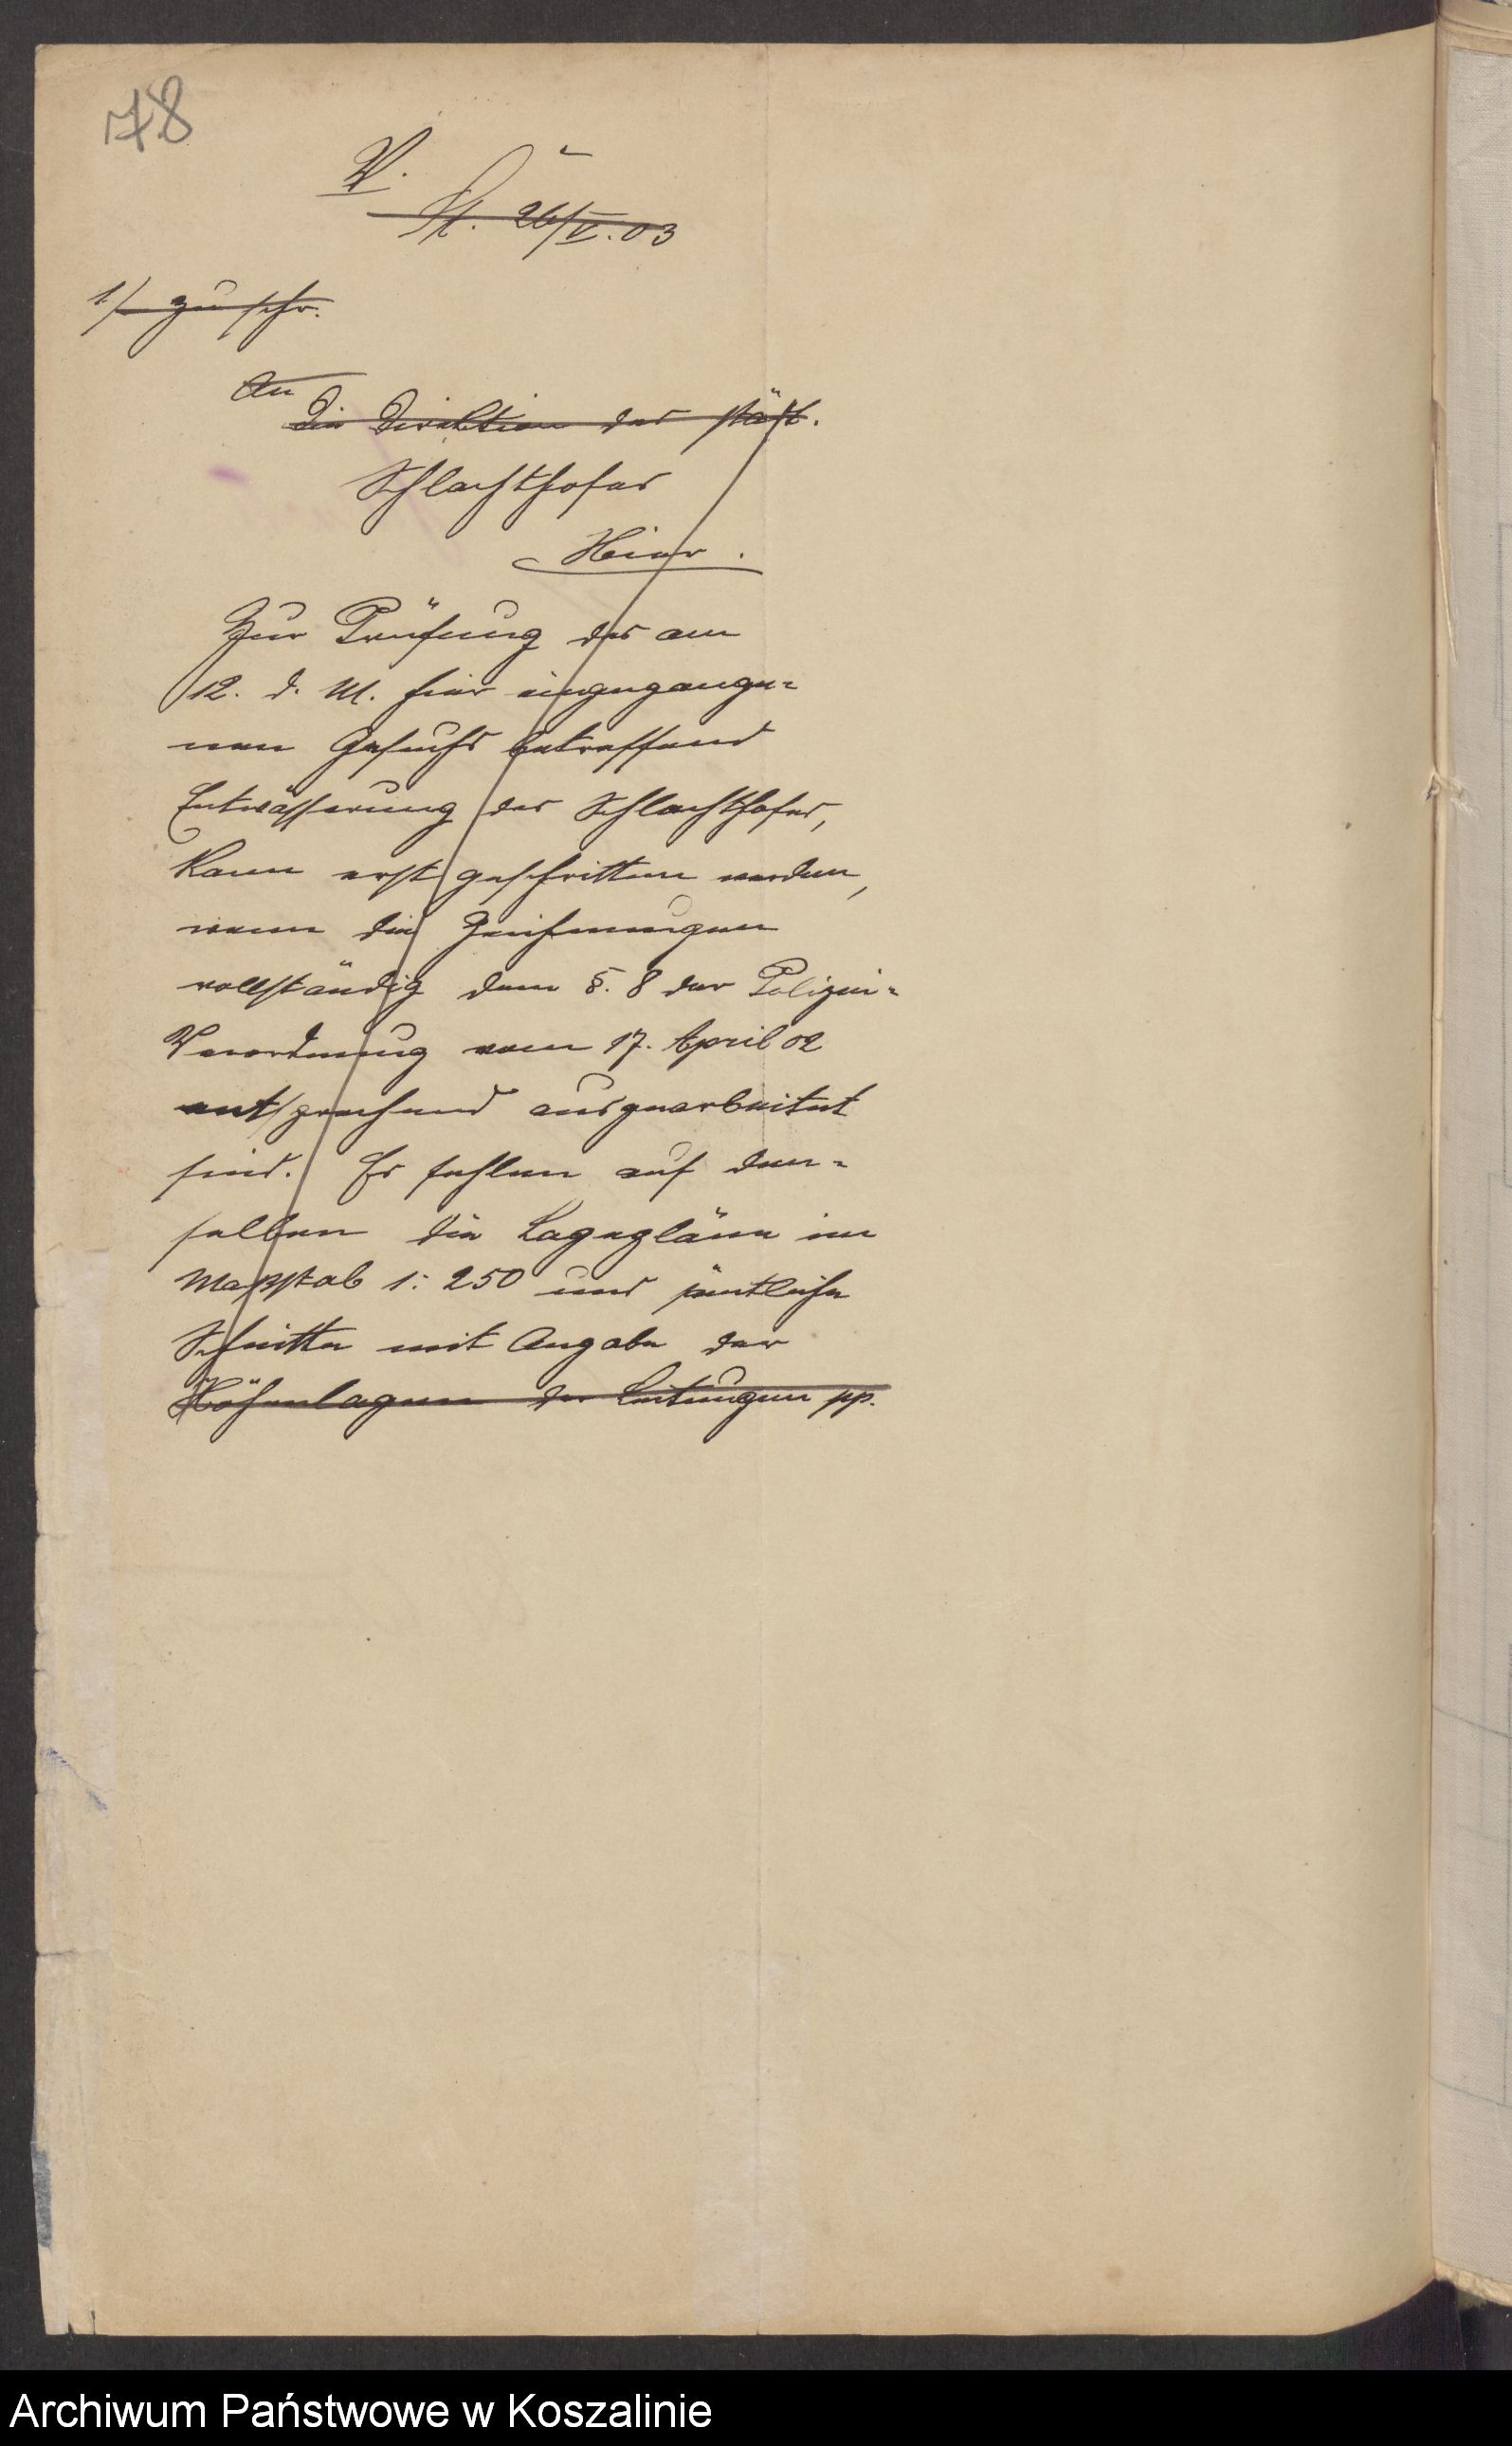 78
V.
St. 26/V. 03
1/ zu schr.
An
die Direktion des städt.
Schlachthofes
Hier.
Zur Prüfung des am
12. d. M. hier eingegange=
nen Gesuchs betreffend
Entwässerung des Schlachthofes,
kann erst geschritten werden,
wenn die Zeichnungen
vollständig dem §. 8 der Polizei=
Verordnung vom 17. April 02
entsprechend ausgearbeitet
sind. Es fehlen auf den=
selben die Lagepläne im
Maßstab 1:250 und sämtliche
Schnitte mit Angabe der
Höhenlagen der Leitungen pp.
Archiwum Państwowe w Koszalinie